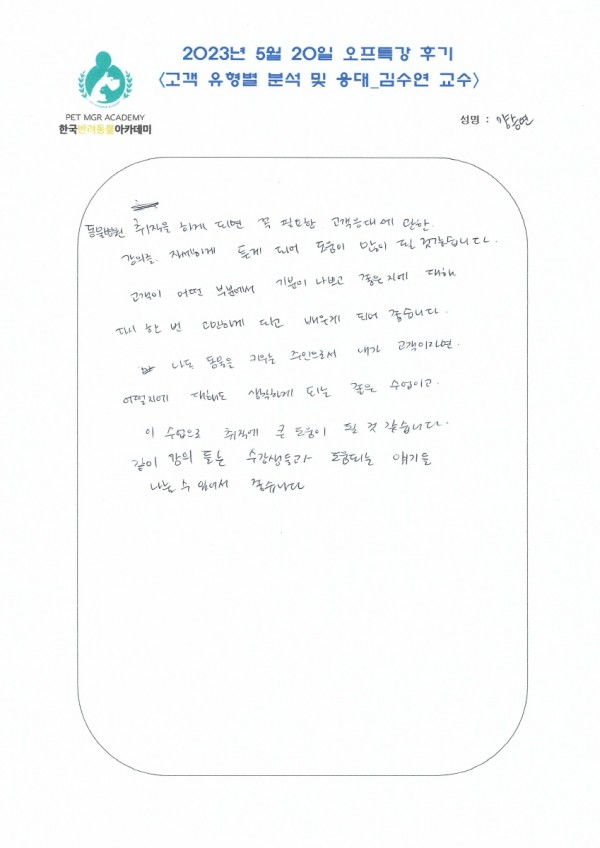 2023년 5월 20일 오프특강 후기
<고객 유형별 분석 및 응대_김수연 교수>
PET MGR ACADEMY
한국반려동물아카데미
성명 :
동물병원 취직을 하게 되면 꼭 필요한 고객응대에 관한
강의를. 자세하게 듣게 되어 도움이 많이 될 것같습니다.
고객이 어떤 부분에서 기분이 나쁘고 좋은지에 대해
다시 한 번 고민하게 되고 배우게 되어 좋습니다.
나도 동물을 키우는 주인으로서 내가 고객이라면.
어떨지에 대해도 생각하게 되는 좋은 수업이고.
이 수업으로 취직에 큰 도움이 될 것 같습니다.
같이 강의 들은 수강생들과 도움되는 얘기들
나눌 수 있어서 좋습니다